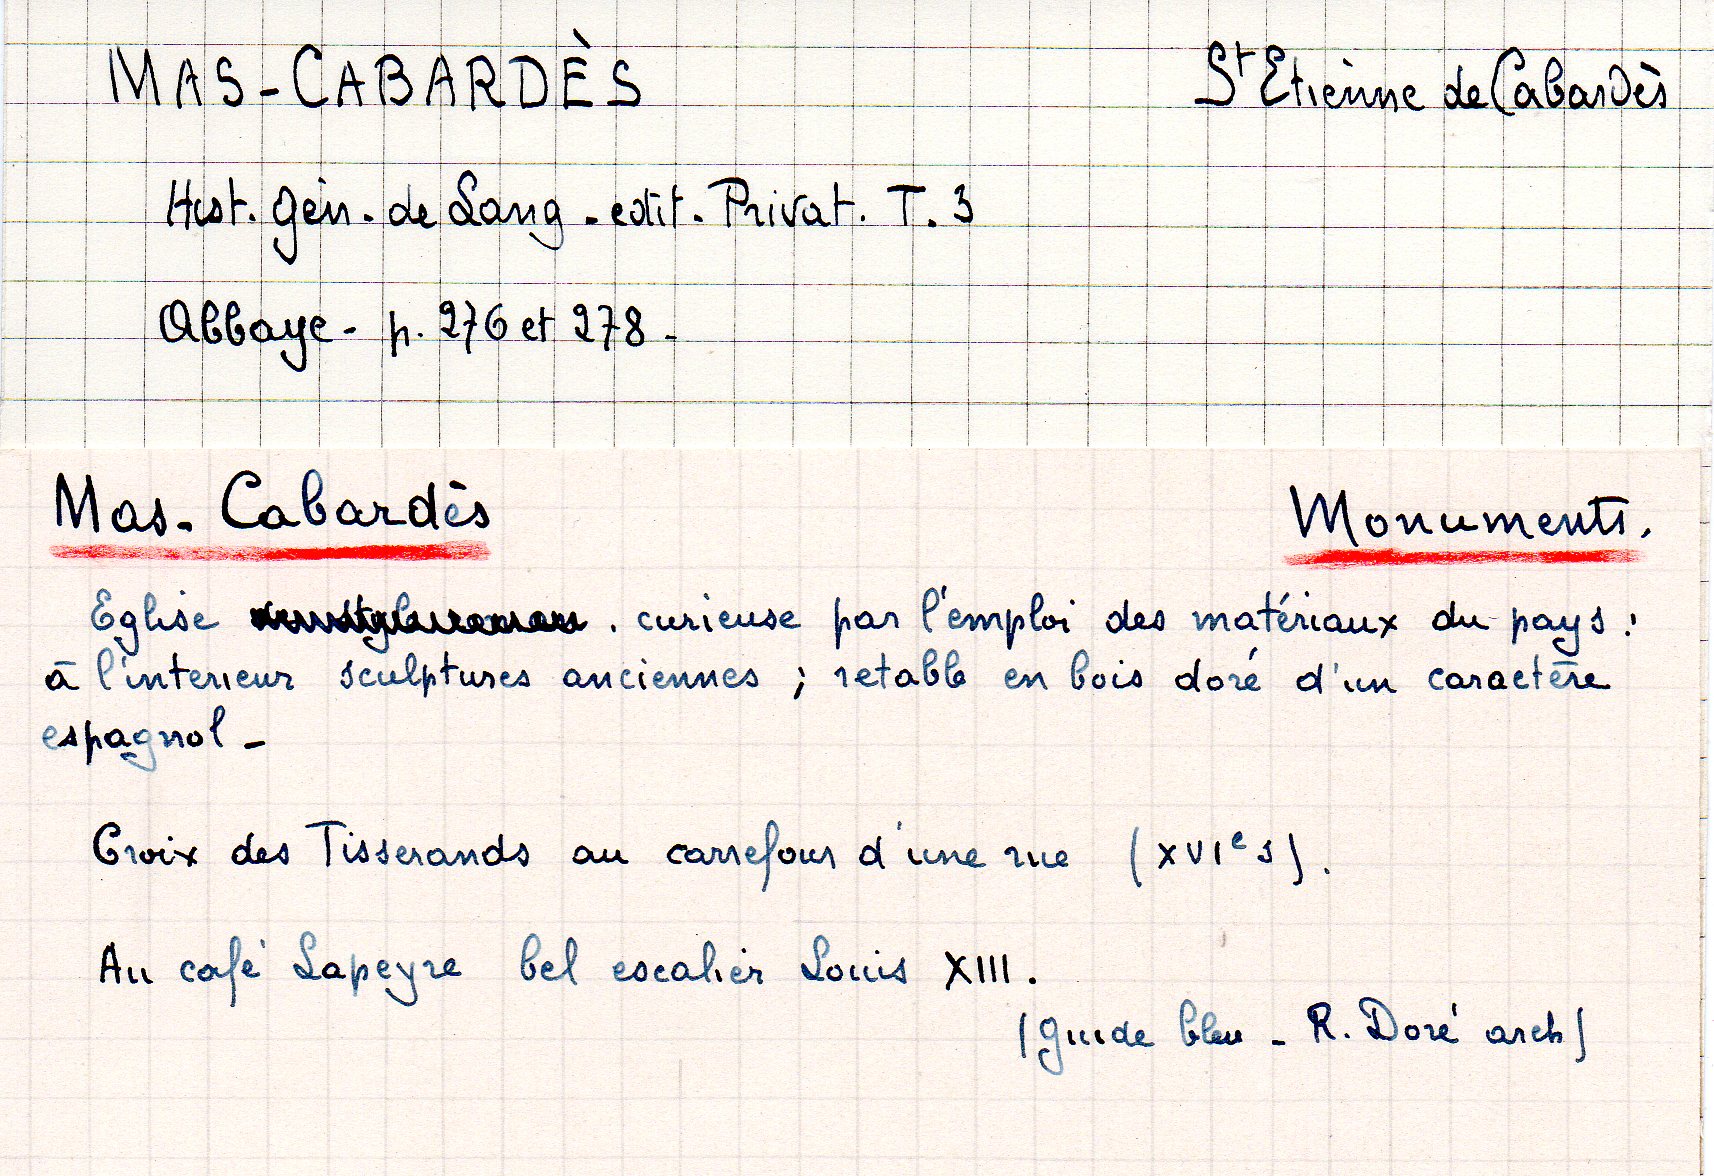 MAS-CABARDÈS
St Etienne de Cabardès
Hist. gén. de Lang - edit. Privat. T. 3
Abbaye - p. 276 et 278 -
Mas-Cabardès
Monuments.
Eglise . curieuse par l'emploi des matériaux du pays :
à l'interieur sculptures anciennes ; retable en bois doré d'un caractère
espagnol -
Croix des Tisserands au carrefour d'une rue (XVIe s).
Au café Lapeyre bel escalier Louis XIII.
(guide bleu - R. Doré arch)